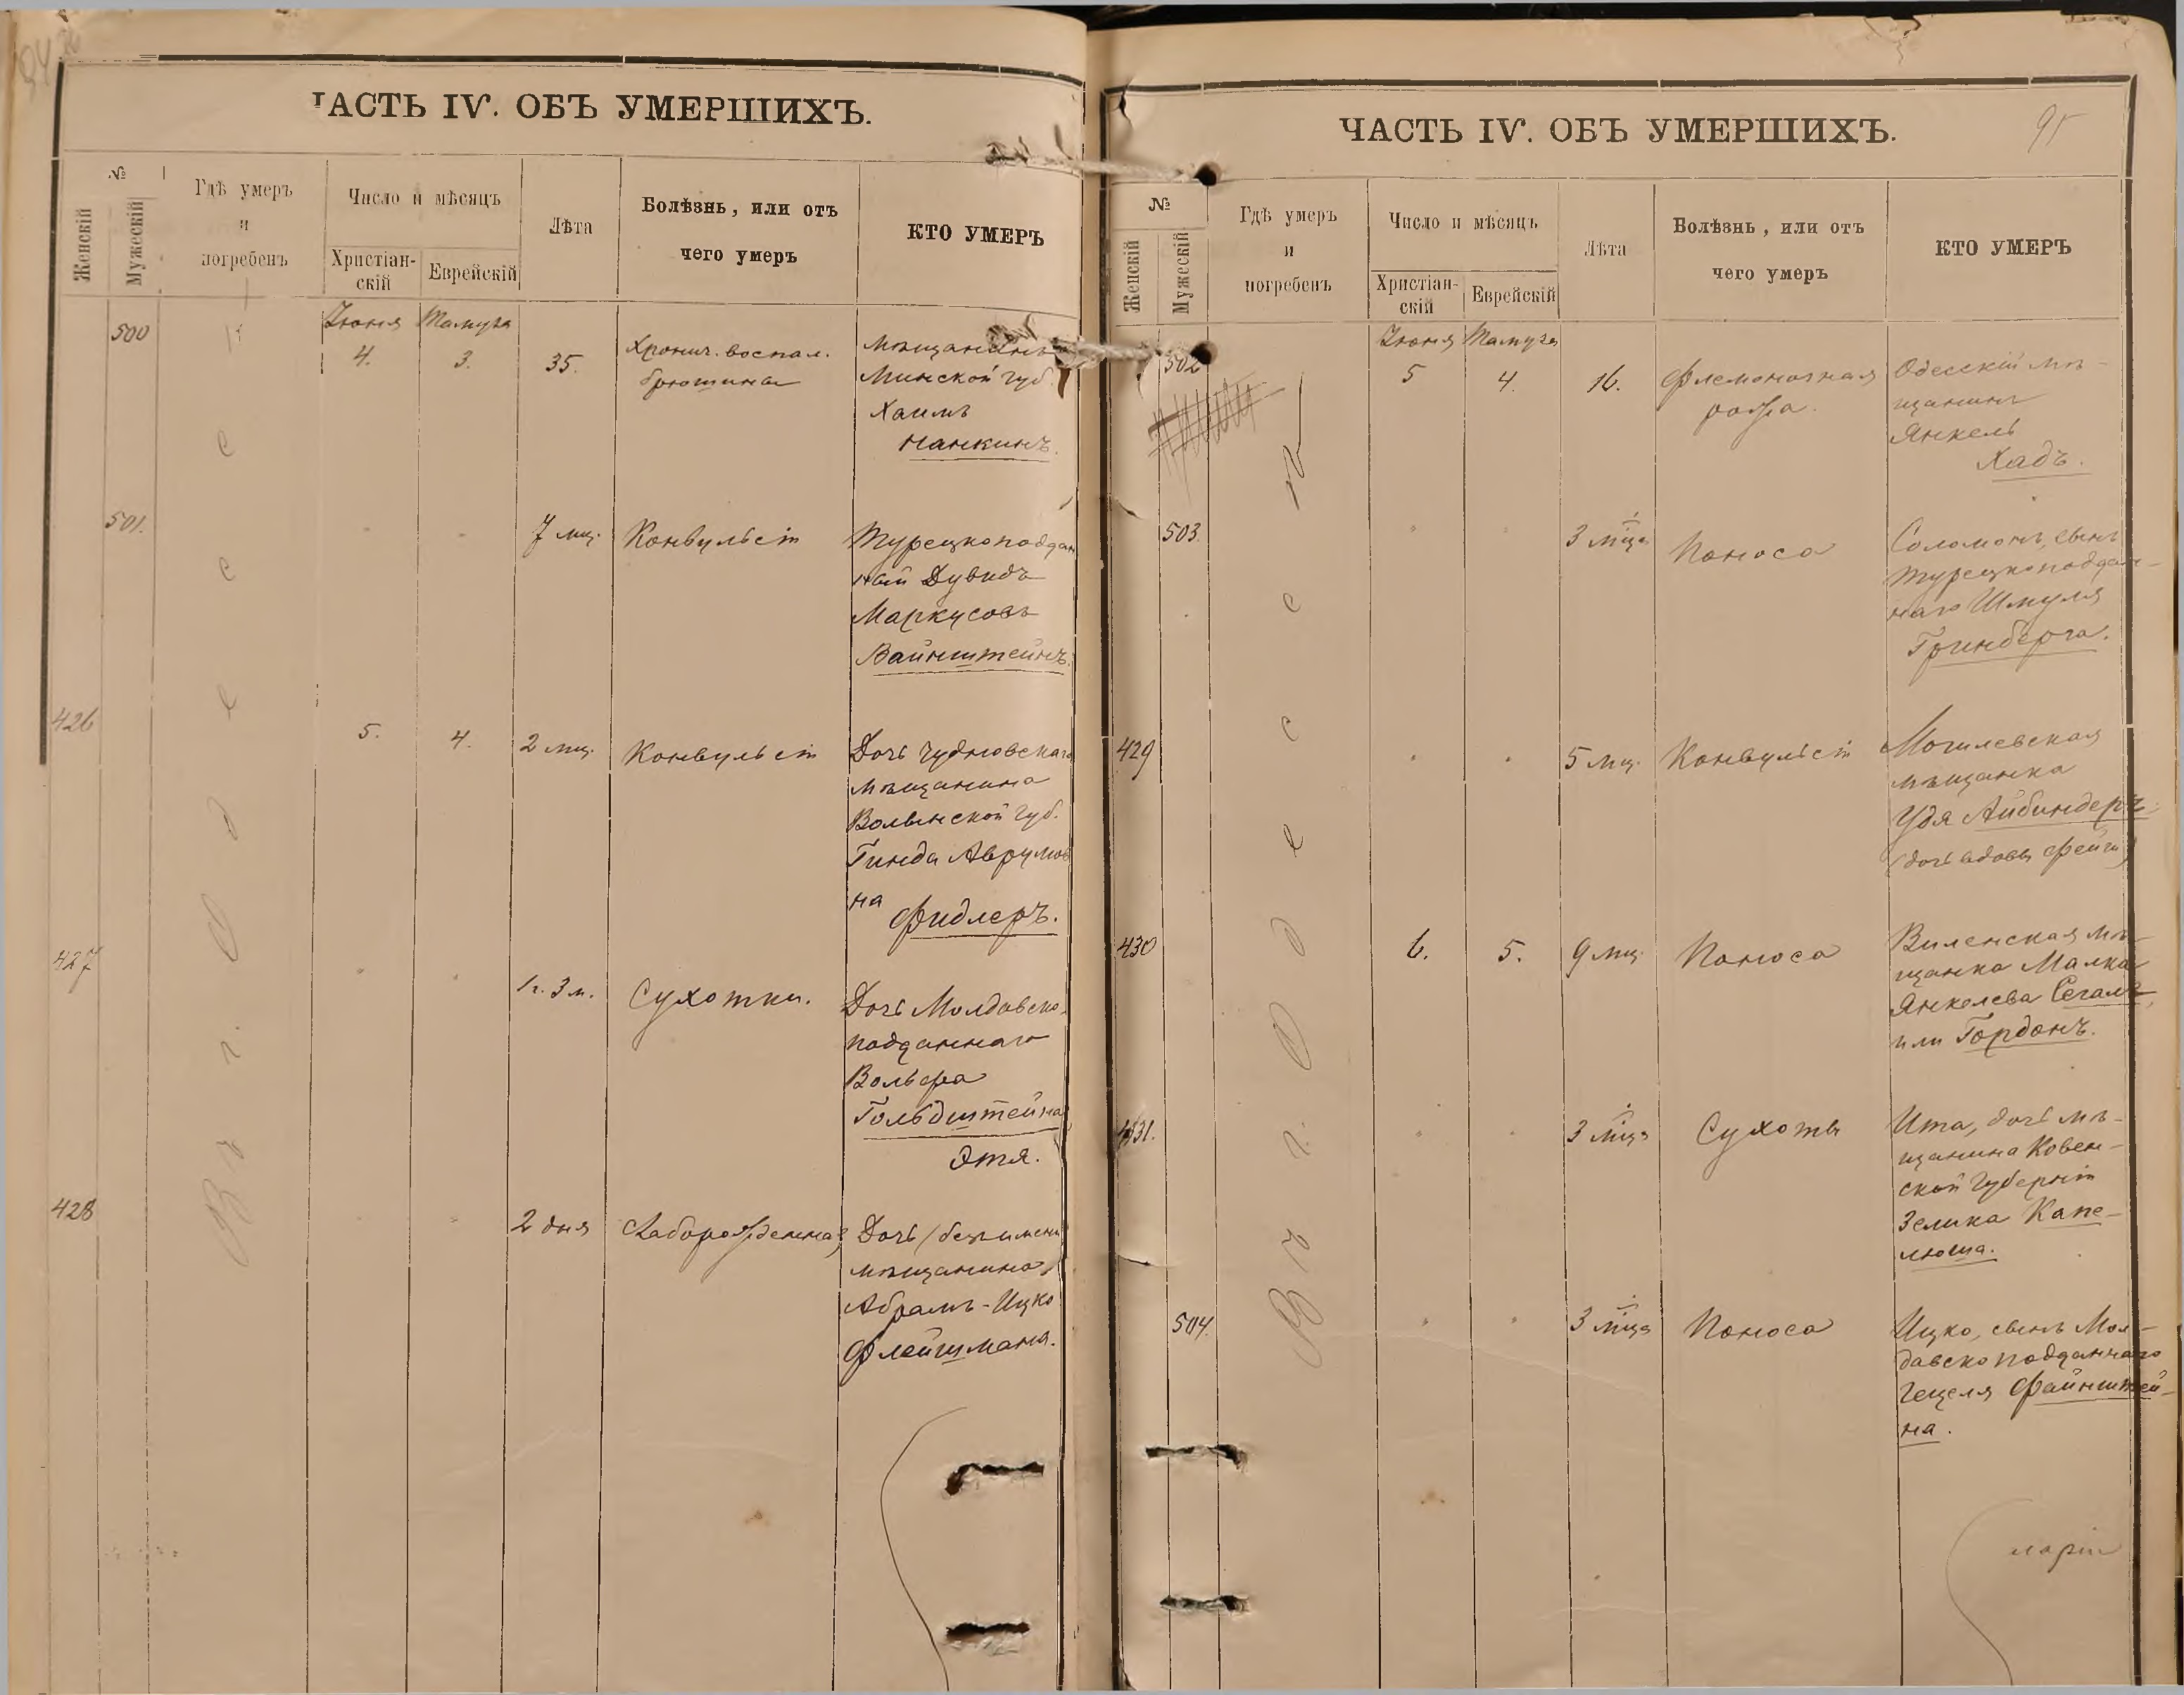 94
ЧАСТЬ IV. ОБЪ УМЕРШИХЪ.
№
Женскій
Мужескій
Гдѣ умеръ
и
погребенъ
Число и мѣсяцъ
Христіан-
скій
Еврейскій
Лѣта
Болѣзнь, или отъ
чего умеръ
КТО УМЕРЪ
Въ г. Одессѣ
500
Іюня
4.
Тамуза
3.
35.
Хронич. воспал.
брюшина
Мѣщанинъ
Минской губ.
Хаимъ
Нанкинъ.
501.
"
"
7 мц.
Конвульсіи
Турецкоподдан
ный Дувидъ
Маркусовъ
Вайнштейнъ.
426
5.
4.
2 мц.
Конвульсіи
Дочь Чудновскаго
мѣщанина
Волынской губ.
Гинда Аврумов
на
Фидлеръ.
427
"
"
1 г. 3 м.
Сухотки.
Дочь Молдавско-
подданнаго
Вольфа
Гольдштейна
Этя.
428
"
"
2 дня
Слаборожденная
Дочь (безъ имени
мѣщанина
Абрамъ-Ицко
Флейшмана.
ЧАСТЬ IV. ОБЪ УМЕРШИХЪ.
95
№
Женскій
Мужескій
Гдѣ умеръ
и
погребенъ
Число и мѣсяцъ
Христіан-
скій
Еврейскій
Лѣта
Болѣзнь, или отъ
чего умеръ
КТО УМЕРЪ
Въ г. Одессѣ
502
Іюня
5
Тамуза
4.
16.
Флемонозная
рожа.
Одесскій мѣ-
щанинъ
Янкель
Хадъ.
503.
"
"
3 мца
Поноса
Соломонъ, сынъ
турецкоподдан-
наго Шмуля
Гринберга.
429
"
"
5 мц.
Конвульсіи
Могилевская
мѣщанка
Удя Айбиндеръ
(дочь вдовы Фейги)
430
6.
5.
9 мц.
Поноса
Виленская мѣ-
щанка Малка
Янкелева Сегаль
или Гордонъ.
431.
"
"
3 мца
Сухоты
Ита, дочь мѣ-
щанина Ковен-
ской губерніи
Зелика Капе-
люша.
504.
"
"
3 мца
Поноса
Ицко, сынъ Мол-
давскоподданнаго
Гецеля Файнштей-
на.